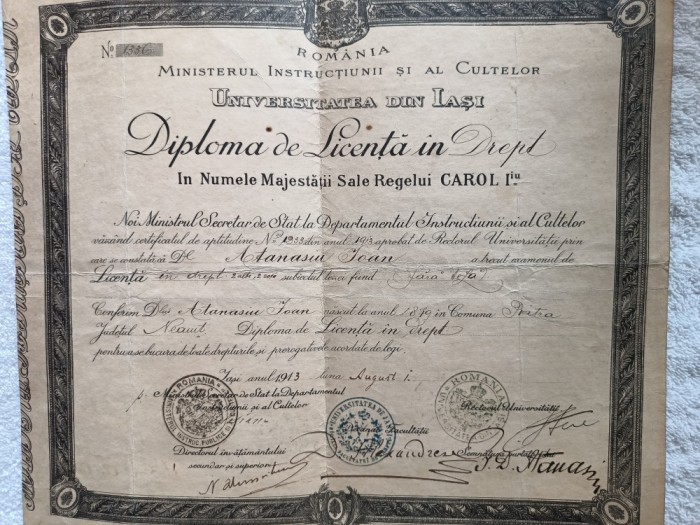 No 1336
ROMÂNIA
MINISTERUL INSTRUCȚIUNII ȘI AL CULTELOR
UNIVERSITATEA DIN IAȘI
Diploma de Licență in Drept
In Numele Majestății Sale Regelui CAROL I.iu
Noi Ministrul Secretar de Stat la Departamentul Instrucțiunii și al Cultelor
văzând certificatul de aptitudine No 1333 din anul 1913 aprobat de Rectorul Universității prin
care se constată că Dl Atanasiu Ioan a trecut examenul de
Licență in drept subiectul tezei fiind fără teză
Conferim Dlui Atanasiu Ioan născut la anul 1889 in Comuna Piatra
Județul Neamț Diploma de Licență in drept
pentru a se bucura de toate drepturile și prerogativele acordate de legi.
Iași anul 1913 luna August 1.
p. Ministru Secretar de Stat la Departamentul
Instrucțiunii și al Cultelor
Rectorul Universității
ROMANIA
UNIVERSITATEA DE IASSI
ROMANIA
Decanul Facultății
Directorul învățământului
secundar și superior
Semnătura purtătorului